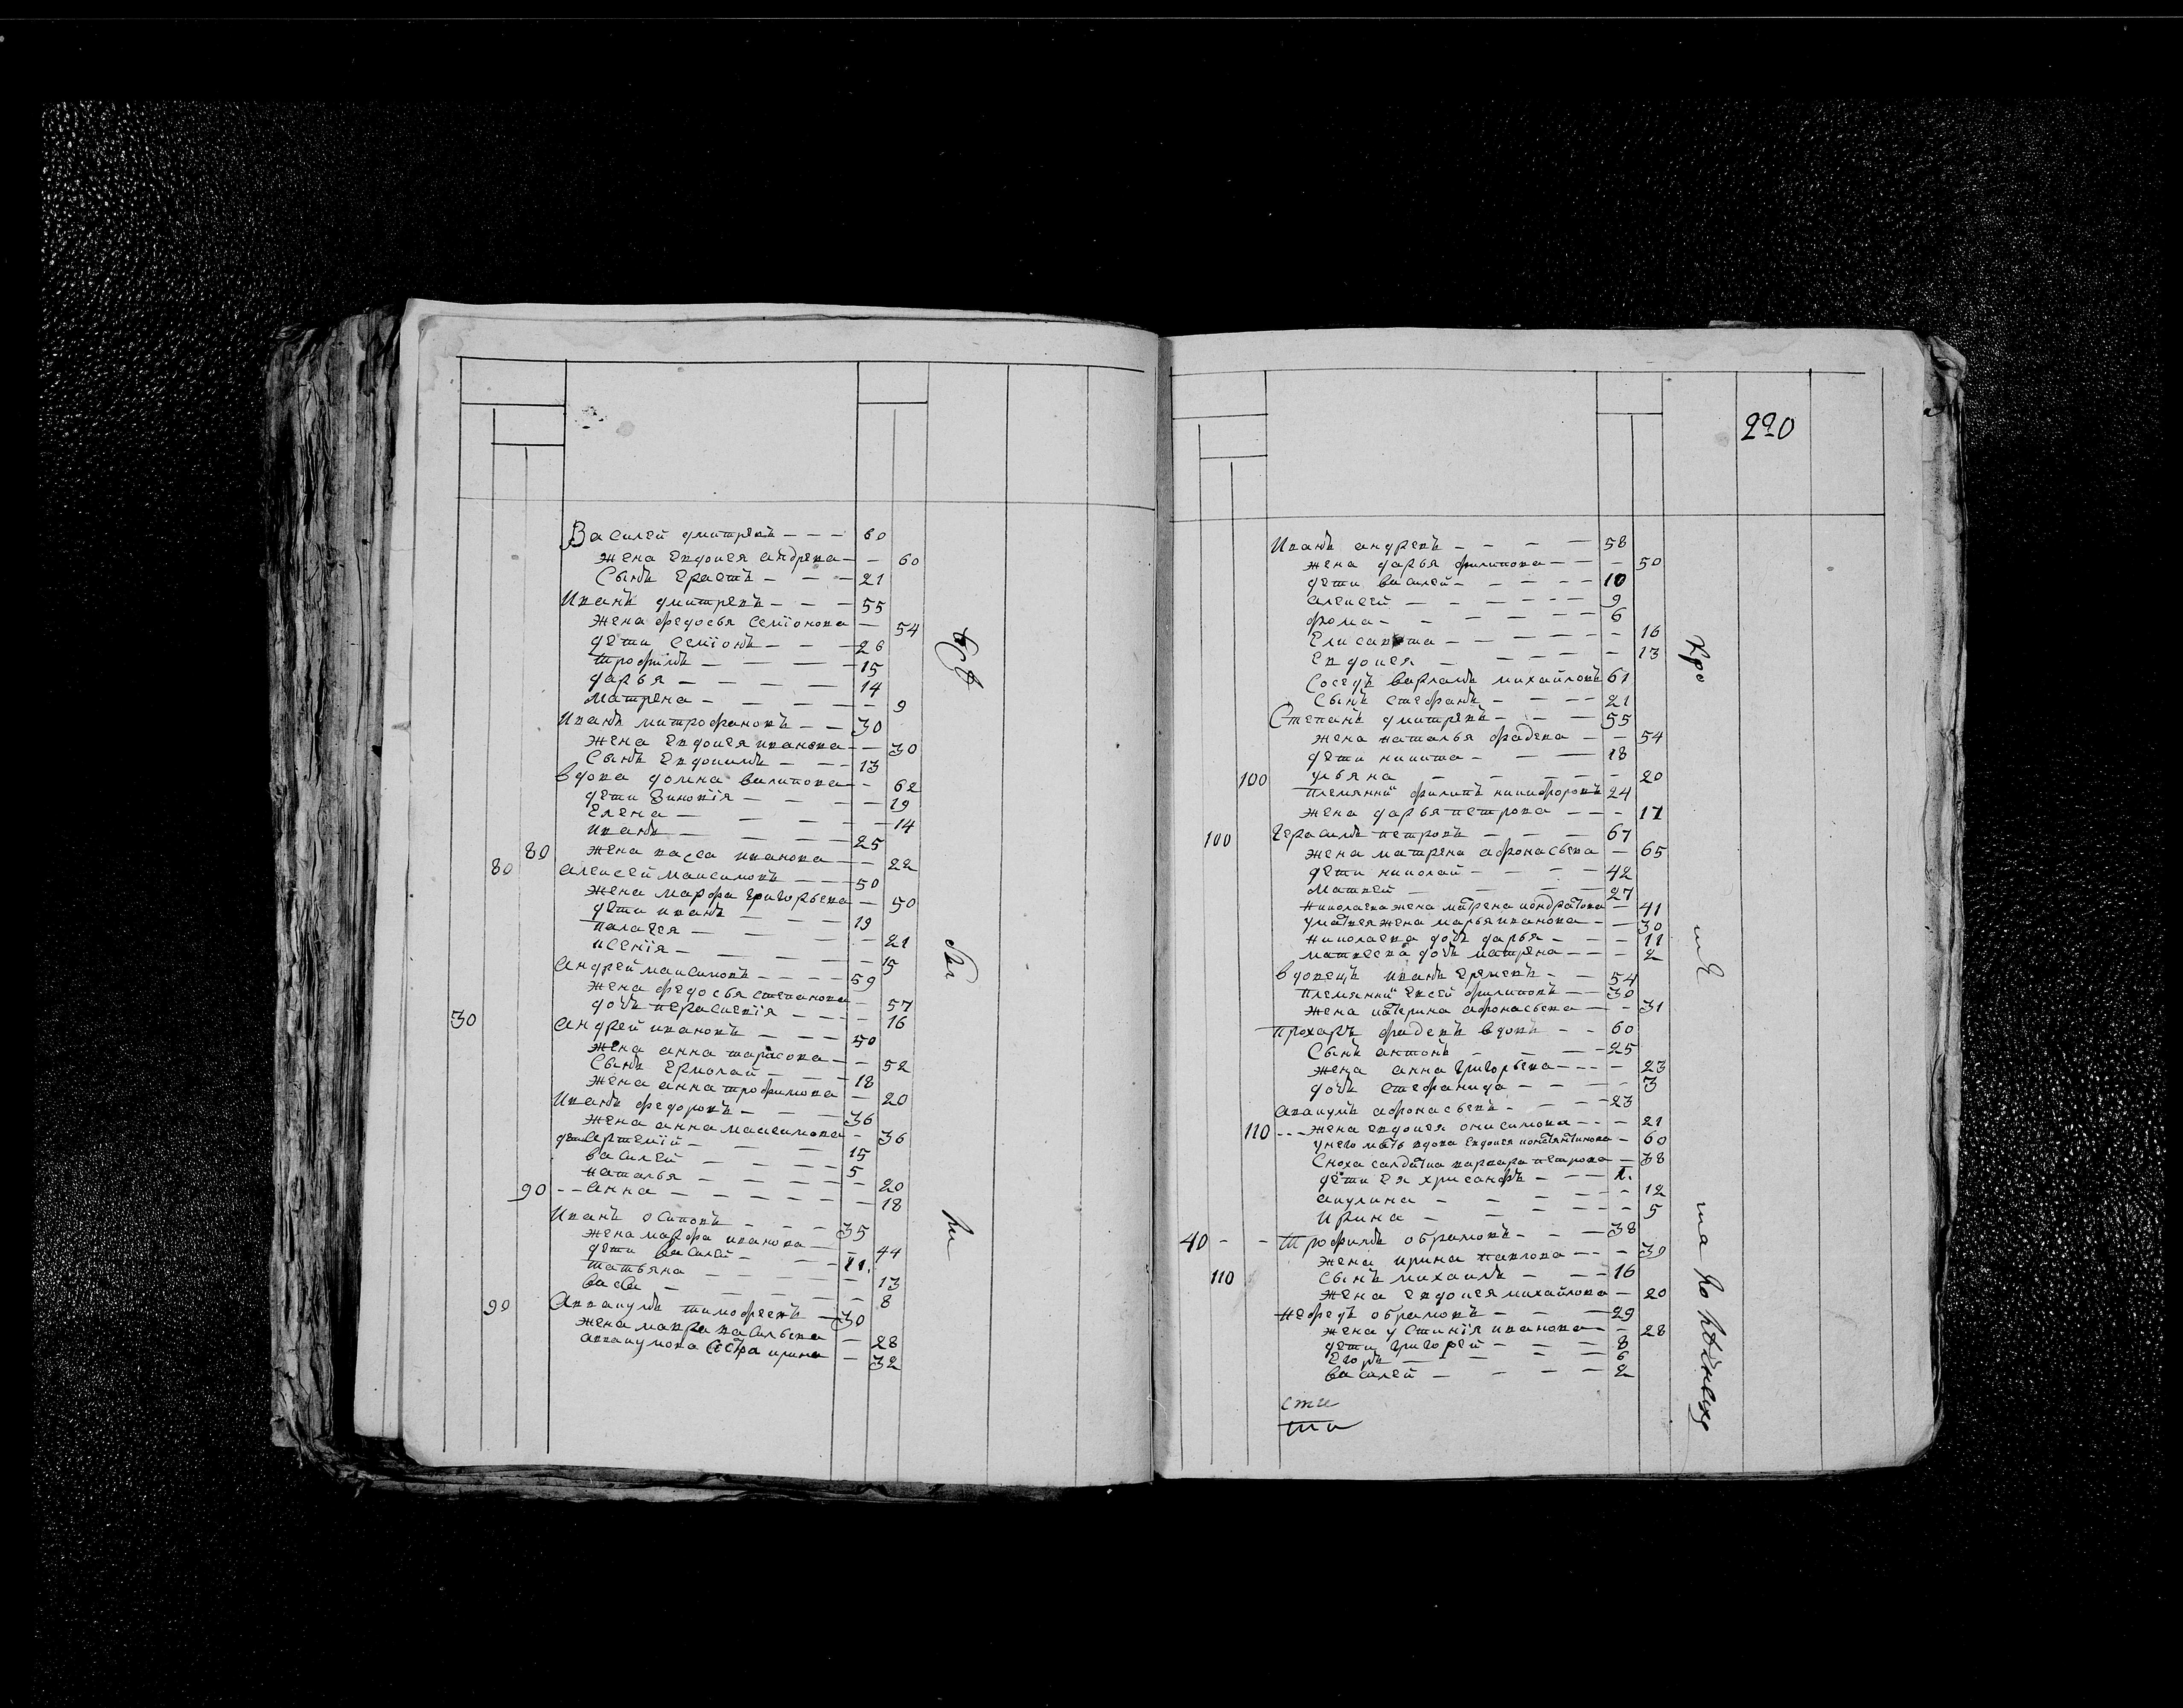 Василей дмитревъ - - - 60
жена евдокея андрева - - 60
Сынъ ерастъ - - - 21
Иванъ дмитревъ - - - 55
жена федосья семіонова - 54
дети семіонъ - - - 26
трофимъ - - - 15
дарья - - - - 14
матрена - - - - 9
Иванъ митрофановъ - - 30
жена евдокея иванова - - 30
Сынъ евдокимъ - - - 13
вдова домна филипова - - 62
дети Зиновія - - - - 19
Елена - - - - 14
иванъ - - - - 25
80 жена васса иванова - - 22
80 алексей максимовъ - - - 50
жена марфа григорьева - 50
дети иванъ - - - 19
палагея - - - - 21
ксенія - - - - 15
андрей максимовъ - - - 59
жена федосья степанова - 57
дочь перасковія - - - - 16
30 андрей ивановъ - - - 50
жена анна тарасова - - 52
Сынъ ермолай - - - 18
жена анна трофимова - 20
Иванъ федоровъ - - - 36
жена анна максимова - 36
дети артемій - - - 15
василей - - - - 5
наталья - - - - 20
90 - - анна - - - - - 18
Иванъ осиповъ - - - 35
жена марфа иванова - 44
дети василей - - - 11.
татьяна - - - - 13
васса - - - - - 8
90 Аввакумъ тимофеевъ - 30
жена мавра васильева - 28
аввакумова сестра ирина - 32
220
Иванъ андревъ - - - - 58
жена дарья филипова - - - 50
дети василей - - - - - 10
алексей - - - - - - 9
фома - - - - - - 6
Елисавета - - - - - - 16
Евдокея - - - - - 13
Соседъ варламъ михайловъ 61
Сынъ стефанъ - - - - 21
Степанъ дмитревъ - - - 55
жена наталья фадева - - 54
дети никита - - - 18
100 ульяна - - - - - - 20
племянни филипъ никифоровъ 24
жена дарья петрова - - - - 17
100 Герасимъ петровъ - - - 67
жена матрена афонасьева - 65
дети николай - - - - 42
матвей - - - - 27
николаева жена матрена кондратова - 41
у матвея жена марья иванова - 30
николаева дочь дарья - - - 11
матвеева дочь матрена - - - 2
вдовецъ иванъ еремевъ - - 54
племянни евсей филиповъ - - 30
жена катерина афонасьева - - 31
прохаръ фадевъ вдовъ - - 60
Сынъ антонъ - - - - 25
жена анна григорьева - - - - 23
дочь стефанида - - - - 3
авакумъ афонасьевъ - - - - 23
110 - - - жена евдокея онисимова - - - 21
у него мать вдова евдокея константинова - 60
Сноха салдатка варвара петрова - 38
дети ея хрисанфъ - - - 1.
акулина - - - - - - 12
Ирина - - - - - - - 5
40 - - Трофимъ обрамовъ - - - 38
жена ирина павлова - - - 39
110 сынъ михаилъ - - - - 16
жена евдокея михайлова - 20
нефедъ обрамовъ - - - 29
жена устинія иванова - - 28
дети григорей - - - - 8
Егоръ - - - - 6
василей - - - - 2